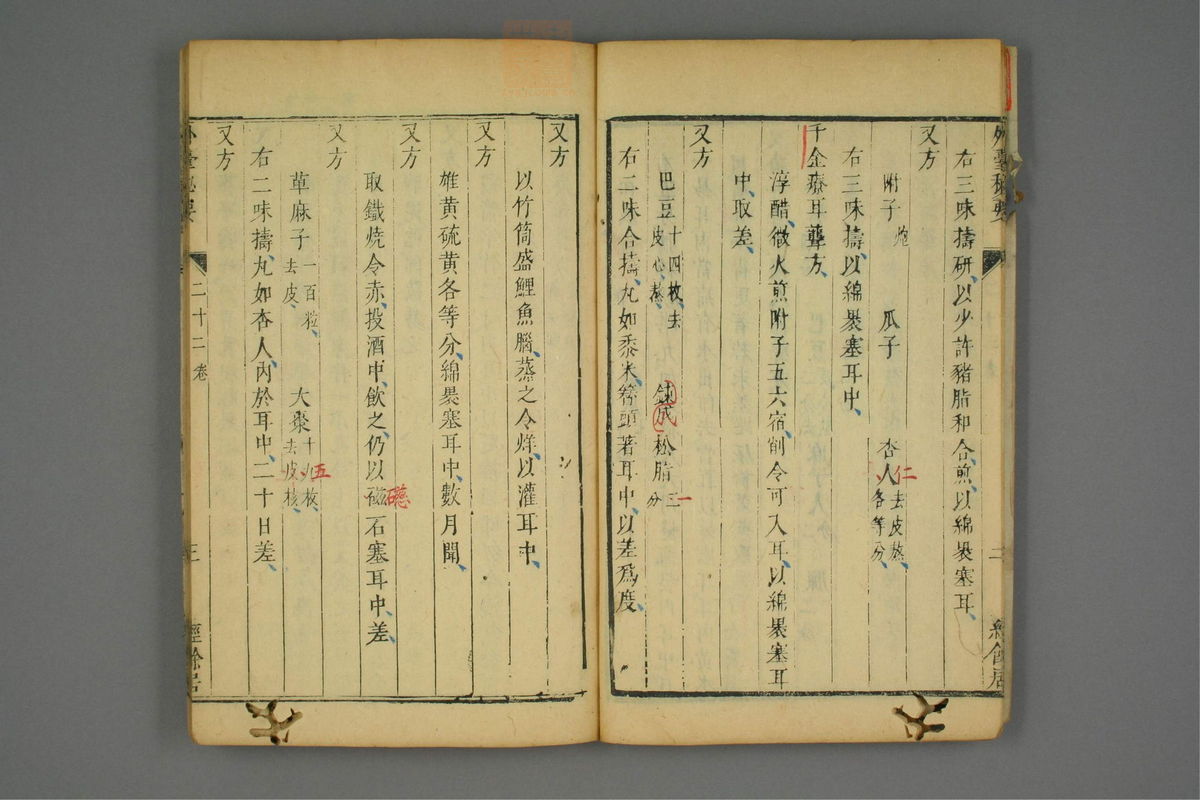 外臺秘要
右三味擣研、以少許豬脂和合煎、以綿褁塞耳、
又方
附子炮 瓜子 杏人仁去皮熬、各等分、
右三味擣、以綿褁塞耳中、
千金療耳聾方、
淳醋、微火煎附子五六宿、削令可入耳、以綿褁塞耳
中、取差、
又方
巴豆十四枚、去皮心、熬、 鍊成松脂三分 一
右二味合擣、丸如黍米簪頭著耳中、以差爲度、
又方
以竹筒盛鯉魚腦、蒸之令烊、以灌耳中、
又方
雄黄硫黄各等分、綿褁塞耳中、數月聞、
又方
取鐵燒令赤、投酒中、飲之、仍以磁石塞耳中、差、
又方
萆麻子一百粒、去皮、 大棗十九枚、去皮核、 五
右二味擣、丸如杏人、內於耳中、二十日差、
又方
二十二卷
三
經餘居